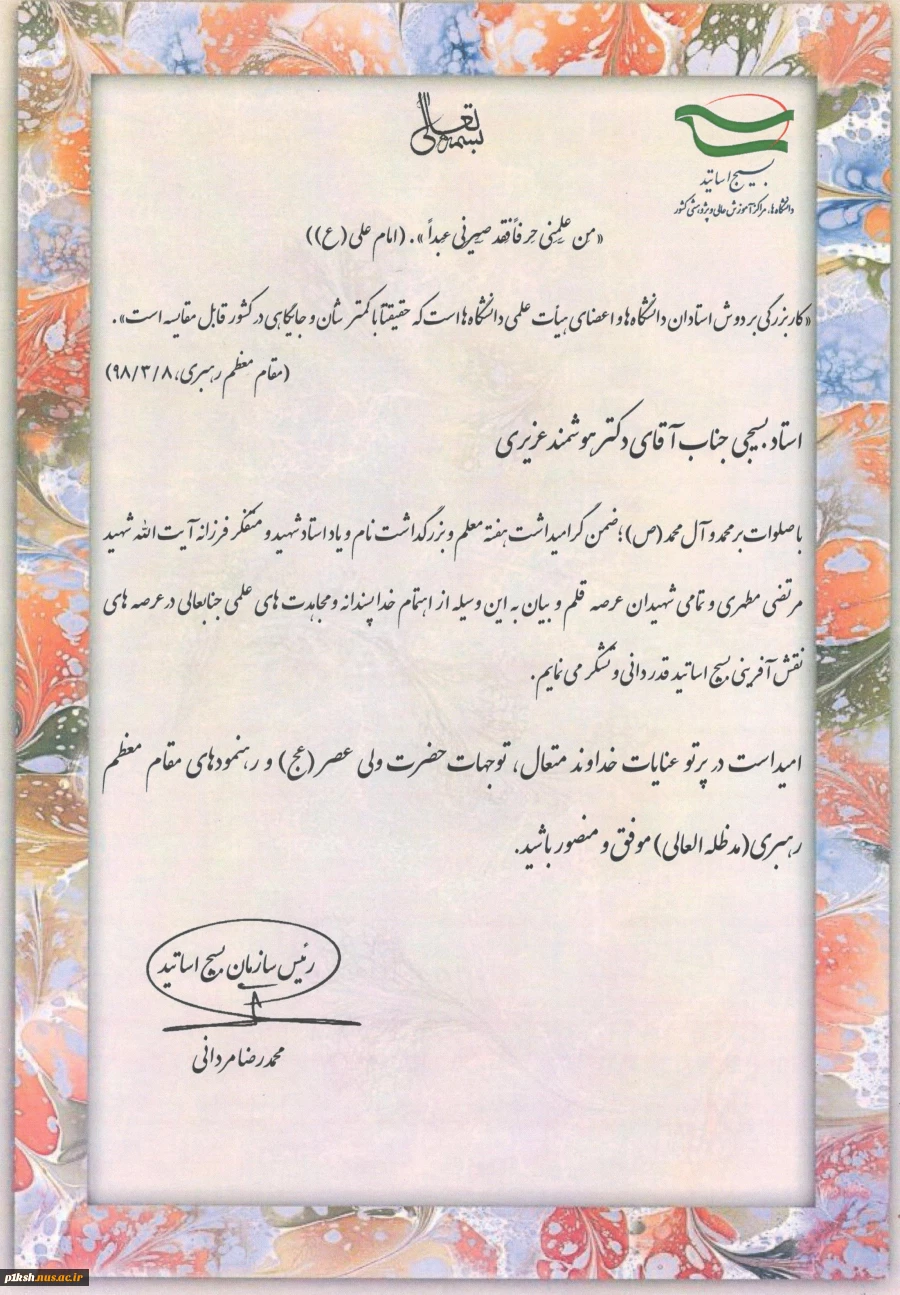 بسمه تعالی
بسیج اساتید
دانشگاه ها، مراکز آموزش عالی و پژوهشی کشور
«من علمنی حرفاً فقد صیرنی عبداً». (امام علی (ع))
«کار بزرگی بر دوش استادان دانشگاه ها و اعضای هیأت علمی دانشگاه ها است که حقیقتا با کمتر شأن و جایگاهی در کشور قابل مقایسه است».
(مقام معظم رهبری، ۹۸/۳/۸)
استاد بسیجی جناب آقای دکتر هوشمند عزیزی
با صلوات بر محمد و آل محمد (ص)؛ ضمن گرامیداشت هفته معلم و بزرگداشت نام و یاد استاد شهید و متفکر فرزانه آیت الله شهید
مرتضی مطهری و تمامی شهیدان عرصه قلم و بیان به این وسیله از اهتمام خداپسندانه و مجاهدت های علمی جنابعالی در عرصه های
نقش آفرینی بسیج اساتید قدردانی و تشکر می نمایم.
امید است در پرتو عنایات خداوند متعال، توجهات حضرت ولی عصر (عج) و رهنمودهای مقام معظم
رهبری (مدظله العالی) موفق و منصور باشید.
رئیس سازمان بسیج اساتید
محمدرضا مردانی
p1ksh.nus.ac.ir